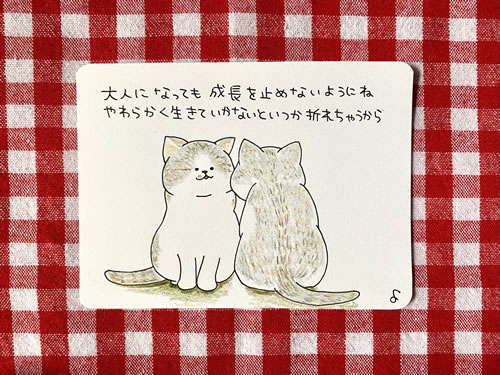 大人になっても 成長を止めないようにね
やわらかく生きていかないといつか折れちゃうから